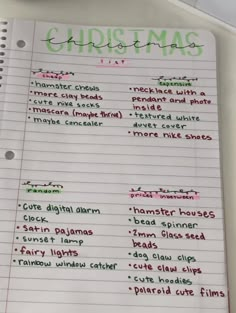 CHRISTMAS
list
cheap
• hamster chews
• more clay beads
• cute nike socks
• mascara (maybe thrive)
• maybe concealer
expensive
• necklace with a
pendant and photo
inside
• textured white
duvet cover
• more nike shoes
random
• cute digital alarm
clock
• satin pajamas
• sunset lamp
• fairy lights
• rainbow window catcher
prices inbetween
• hamster houses
• bead spinner
• 2mm glass seed
beads
• dog claw clips
• cute claw clips
• cute hoodies
• polaroid cute films